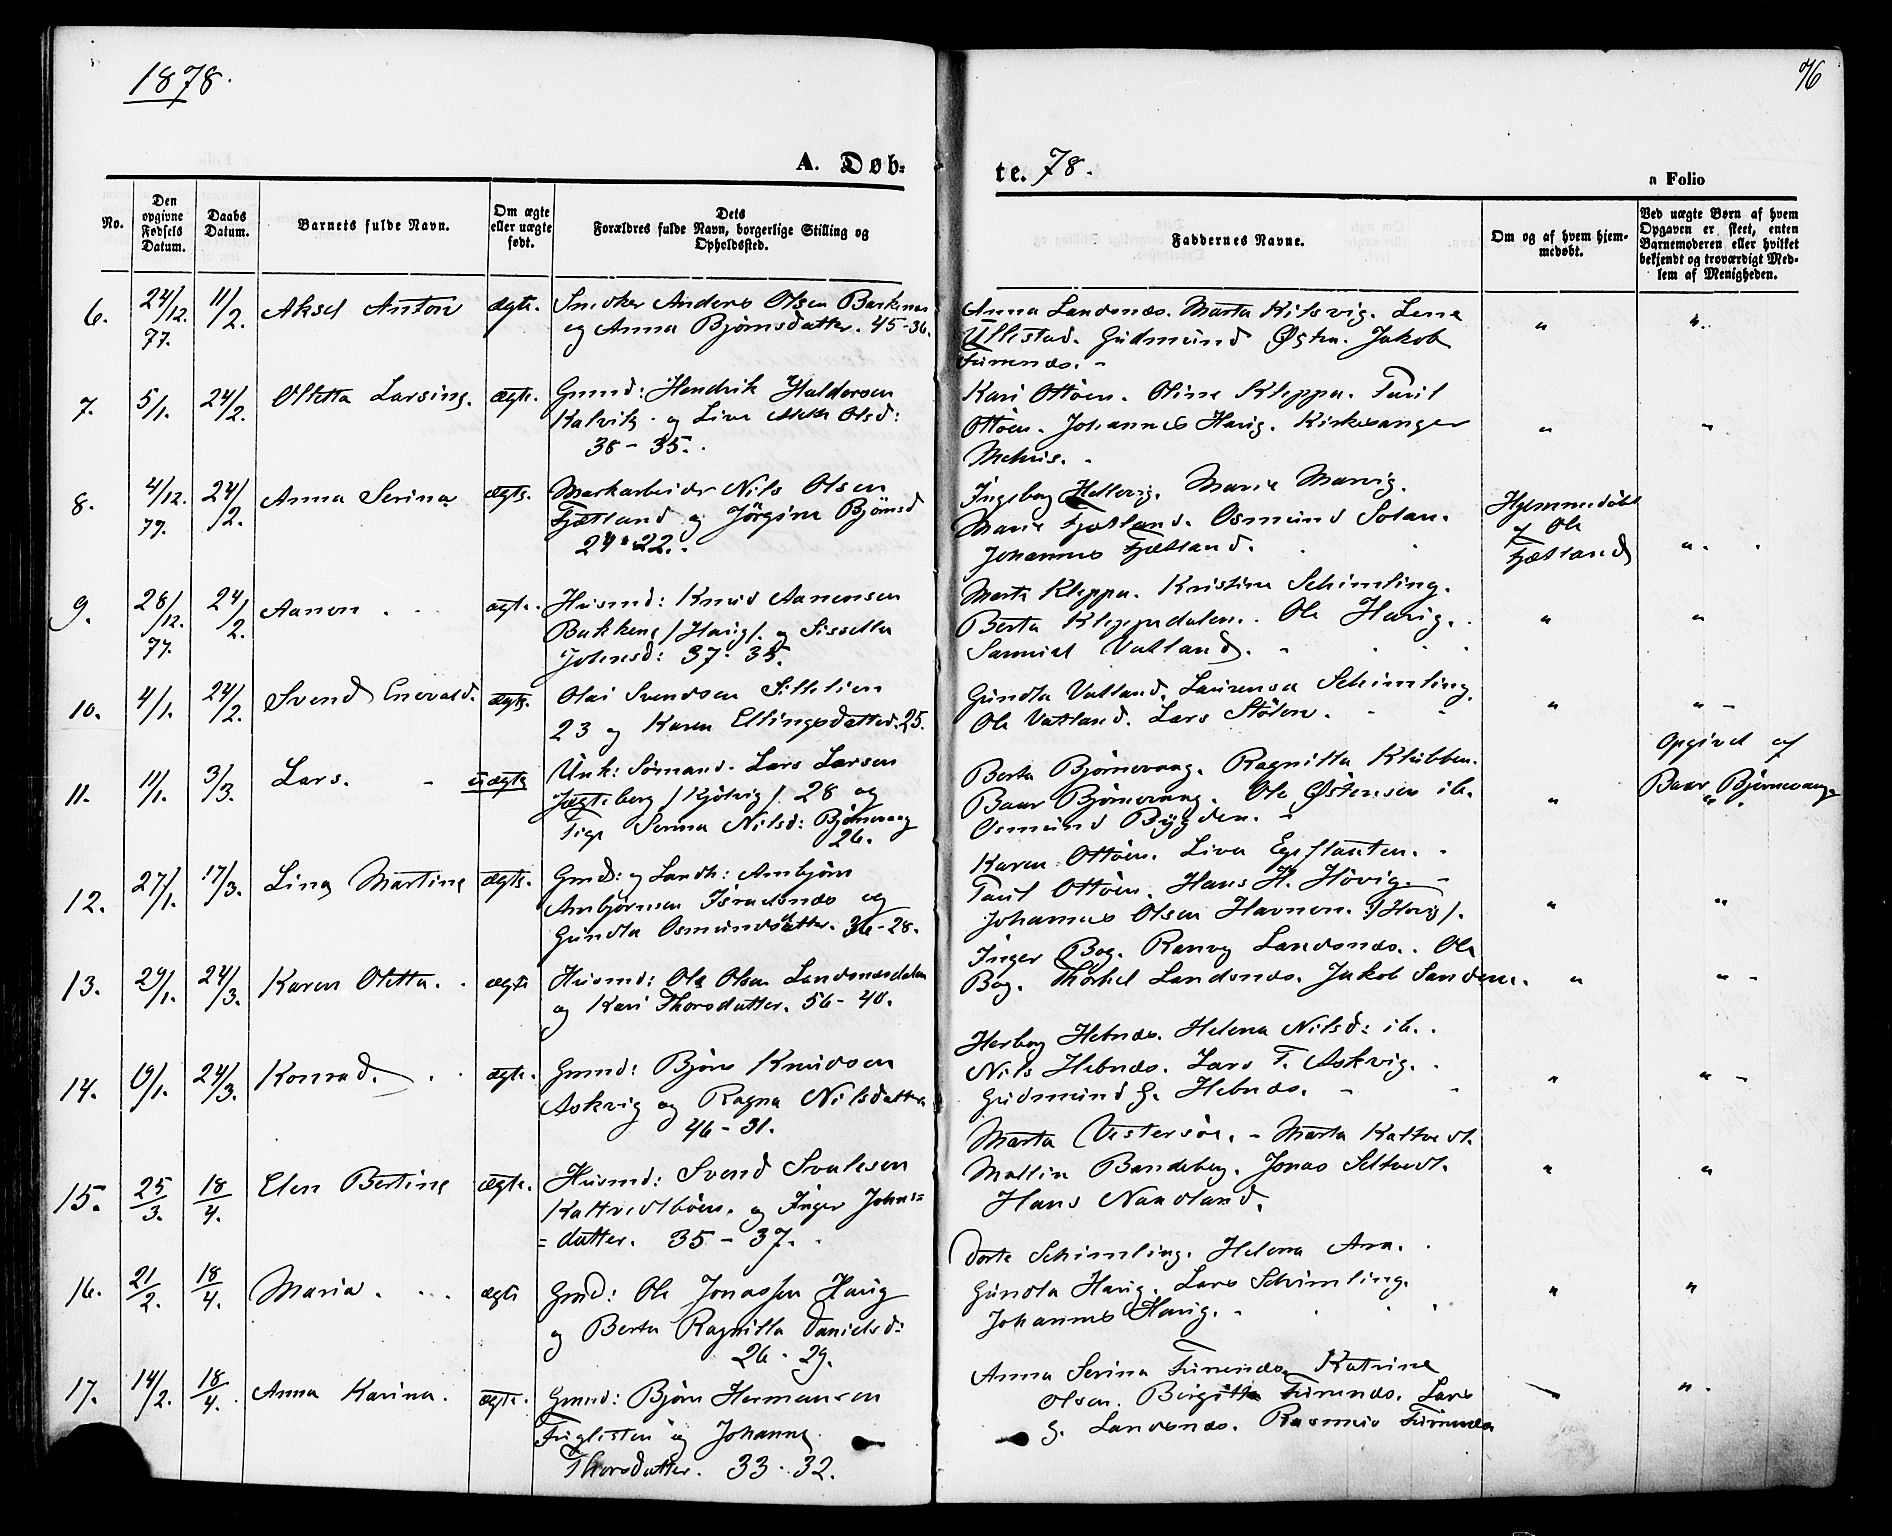 1878.
76
A. Døb-
te. 78.
a Folio
No.
Den opgivne Fødsels Datum.
Daabs Datum.
Barnets fulde Navn.
Om ægte eller uægte født.
Dets Forældres fulde Navn, borgerlige Stilling og Opholdssted.
Faddernes Navne.
Om og af hvem hjemmedøbt.
Ved uægte Børn af hvem Opgaven er skeet, enten Barnemoderen eller hvilket bekjendt og troværdigt Medlem af Menigheden.
6. 24/12. 77. 11/2. Aksel Anton ægte. Snedker Anders Olsen
og Anna Bjørnsdatter. 45-36.
Anna Landsnæs. Marta Kilsvig. Lena
Ullestad. Gudmund Østra. Jakob
Furenæs. -
" "
7. 5/1. 24/2. Oletta Larsine. ægte. Gmd: Hendrik Haldorsen
Kalvik. og Liva Olsd:
38 - 35.
Kari Ottöen. Oline Kleppa. Taril
Ottöen. Johannes Havig. Kirkesanger
Mehus. -
" "
8. 4/12. 77. 24/2. Anna Serina ægte. Markarbeider Nils Olsen
Fjætland og Jörgine Bjömsd
24 - 22.
Ingeborg Hellevig. Marie Marvig.
Marie Fjætland. Osmund Solan.
Johannes Fjætland.
Hjemmedøbt
af Ole
Fjætland
"
9. 28/12. 77. 24/2. Aanen. ægte. Husmd: Knud Aanensen
Bakkene /Havig/. og Sissella
Johnsd: 37. 35.
Marta Kleppa. Kristina Schimling.
Berta Kleppedalen. Ole Havig.
Samuel Vatland. -
" "
10. 4/1. 24/2. Svend Enevald. ægte. Olai Svendsen
23 og Karen Ellingsdatter. 25.
Gundla Vatland. Laurensa Schimling.
Ole Vatland. Lars Stölen. -
" " -
11. 11/1. 3/3. Lars. - uægte Unk: Sömand. Lars Larsen
Jægteberg /Kjölvig/. 28 og
Pige Serina Nilsd: Björnevaag
26.
Berta Björnevaag. Ragnilla Klubben.
Baar Björnevaag. Ole Østensen ib.
Osmund Bygden. -
"
Opgivet af
Baar Björnevaag
12. 27/1. 17/3. Lina Martine ægte. Gmd: og Landh: Anbjörn
Anbjörnsen Israelsnæs og
Gundla Osmundsdatter. 36 - 28.
Karen Ottöen. Liva
Taril Ottöen. Hans H. Hövig. -
Johannes Olsen Havnen. /Havig/.
" "
13. 29/1. 24/3. Karen Oletta. ægte Husmd: Ole Olsen Landsnæsdalen
og Kari Thorsdatter. 56 - 40.
Inger Bog. Ranvey Landsnæs. Ole
Bog. Thorkel Landsnæs. Jakob Sanden.
" " -
14. 19/1. 24/3. Konrad. ægte. Gmd: Björn Knudsen
Askvig og Ragna Nilsdatter
46 - 31.
Herborg Hebnæs. Helena Nilsd: ib.
Nils Hebnæs. Lars T. Askvig.
Gudmund G. Hebnæs. -
" " -
15. 25/3. 18/4. Elen Bertine ægte. Husmd: Svend Svalesen
Kaltvedtböen. og Inger Johns=
=datter. 35 - 37.
Marta Vestersöe. - Marta Kaltvedt.
Mallin Bandeberg. Jonas Seltvedt.
Hans Nandland.
" "
16. 21/2. 18/4. Maria. ægte Gmd: Ole Jonassen Havig
og Berta Ragnilla Danielsd:
26 - 29.
Dorte Schimling. Helena Ara.
Gundla Havig. Lars Schimling.
Johannes Havig. -
" "
17. 14/2. 18/4. Anna Karina. ægte. Gmd: Björn Hermansen
Fuglesteen og Johanna
Thorsdatter. 33 - 32.
Anna Serina Furenæs. Katrine
Olsen. Birgitta Furenæs. Lars
G. Landsnæs. Rasmus Furenæs
" "